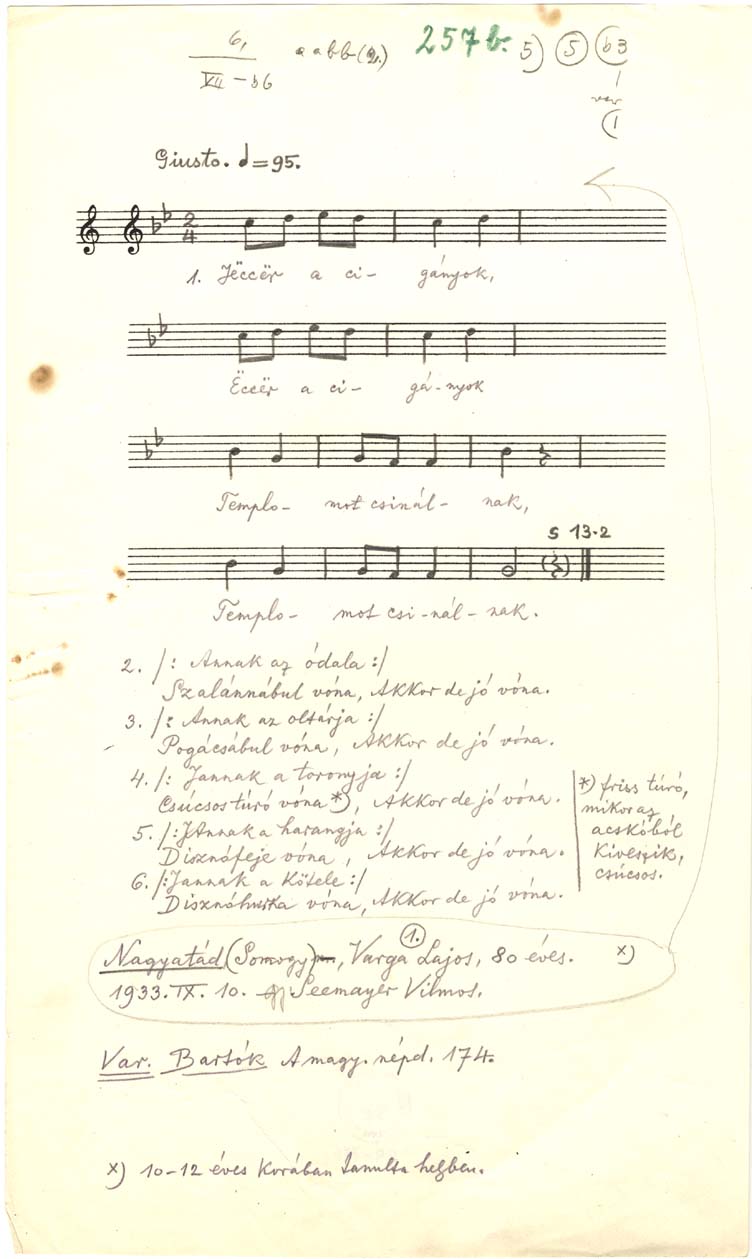 6, aabb(2.) 257b. 5) 5 b3
VII – b6
var
(1
Giusto. ♩=95.
2
4
1. Jëccër a ci- gányok,
Ëccër a ci- gá-nyok
Templo- mot csinál- nak,
S 13·2
Templo- mot csi-nál-nak.
2. /: Annak az ódala :/
Szalánnábul vóna, Akkor de jó vóna.
3. /: Annak az oltárja :/
Pogácsábul vóna, Akkor de jó vóna.
4. /: Jannak a toronyja :/
Csúcsos túró vóna *), Akkor de jó vóna.
5. /: JAnnak a harangja :/
Disznófeje vóna, Akkor de jó vóna.
6. /: Jannak a kötele :/
Disznóhurka vóna, Akkor de jó vóna.
*) friss túró,
mikor az
acskóból
kiveszik,
csúcsos.
1.
Nagyatád (Somogy), Varga Lajos, 80 éves. x)
1933. IX. 10. Seemayer Vilmos.
Var. Bartók A magy. népd. 174.
x) 10–12 éves korában tanulta helyben.